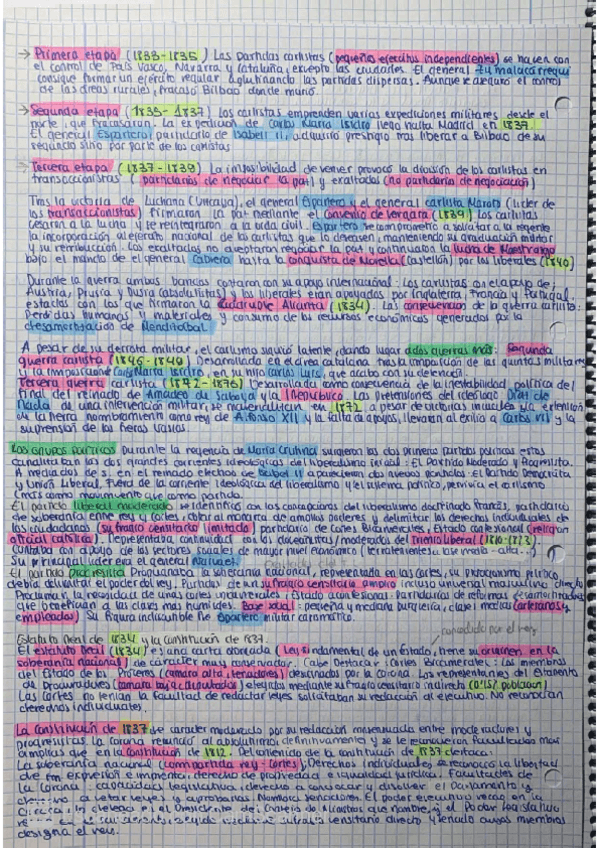 → Primera etapa (1833-1835) Las partidas carlistas (pequeños ejércitos independientes) se hacen con
el control de País Vasco, Navarra y Cataluña, excepto las ciudades. El general Zumalacárregui
consigue formar un ejército regular aglutinando las partidas dispersas. Aunque se aseguró el control
de las áreas rurales, fracasó Bilbao donde murió.
→ Segunda etapa (1835-1837) Los carlistas emprenden varias expediciones militares desde el
norte, que fracasaron. La expedición de Carlos María Isidro llegó hasta Madrid en 1837.
El general Espartero, partidario de Isabel II, adquirió prestigio tras liberar a Bilbao de su
segundo sitio por parte de los carlistas
→ Tercera etapa (1837-1839) La imposibilidad de vencer provocó la división de los carlistas en
transaccionistas (partidarios de negociar la paz) y exaltados (no partidarios de negociación)
Tras la victoria de Luchana (Vizcaya), el general Espartero y el general carlista Maroto (líder de
los transaccionistas) firmaron la paz mediante el Convenio de Vergara (1839) Los carlistas
cesaron a la lucha y se reintegraron a la vida civil. Espartero se comprometió a solicitar a la regente
la incorporación al ejército nacional de los carlistas que lo deseasen, manteniendo su graduación militar
y su retribución. Los exaltados no aceptaron negociar la paz y continuaron la lucha de Maestrazgo
bajo el mando de el general Cabrera hasta la conquista de Morella (Castellón) por los liberales (1840)
Durante la guerra ambos bandos contaron con su apoyo internacional: los carlistas con el apoyo de;
Austria, Prusia y Rusia (absolutistas) y los liberales eran apoyados por Inglaterra, Francia y Portugal.
estados con los que firmaron la Cuádruple Alianza (1834) Las consecuencias de la guerra carlista:
Pérdidas humanas y materiales y consumo de los recursos económicos generados por la
desamortización de Mendizábal.
A pesar de su derrota militar, el carlismo siguió latente, dando lugar a dos guerras más: Segunda
guerra carlista (1846-1849) Desarrollada en el área catalana tras la imposición de las quintas militares
y la imposición de Carlos María Isidro, en su hijo Carlos Luis, que acabó con su detención.
Tercera guerra carlista (1872-1876) Desarrollada como consecuencia de la inestabilidad política del
final del reinado de Amadeo de Saboya y la I República. Las pretensiones del ideólogo
de una intervención militar, se materializaron en 1872, a pesar de victorias iniciales y la extensión
de la guerra nombramiento como rey de Alfonso XII y la falta de apoyos, llevaron al exilio a Carlos VII y la
supresión de los fueros vascos
Los grupos políticos Durante la regencia de María Cristina surgieron los dos primeros partidos políticos estos
canalizaban las dos grandes corrientes ideológicas del liberalismo inicial: El Partido Moderado y Progresista.
A mediados de s. en el reinado efectivo de Isabel II aparecieron dos nuevos partidos: el Partido Demócrata
y Unión Liberal, Fuera de la corriente ideológica del liberalismo y el sistema político, pervivía el carlismo
(más como movimiento que como partido.
El partido liberal moderado se identificó con las concepciones del liberalismo doctrinario francés, partidario
de soberanía entre rey y Cortes, sobre la mayoría de ambos poderes y delimitar los derechos individuales de
los ciudadanos (sufragio censitario limitado) partidario de Cortes Bicamerales, Estado confesional (religión
oficial católica). Representaba continuidad con los doceañistas/moderados del Trienio Liberal (1820-1823)
Contaba con apoyo de los sectores sociales de mayor nivel económico (terratenientes, clase media-alta...)
Su principal líder era el general Narváez.
El partido Progresista Propugnaba la soberanía nacional, representada en las Cortes, su programa político
debía limitar el poder del rey. Partidario de un sufragio censitario amplio incluso universal masculino directo
Proclaman la necesidad de unas cortes unicamerales. Estado aconfesional. Partidarios de reformas
que benefician a las clases más humildes. Base social: pequeña y mediana burguesía, clases medias (artesanos y
empleados) Su figura indiscutible fue Espartero militar carismático.
concedido por el rey
Estatuto Real de 1834 y la constitución de 1837.
El estatuto Real (1834) es una carta otorgada (Ley fundamental de un Estado, tiene su origen en la
soberanía nacional) de carácter muy conservador. Cabe destacar: Cortes Bicamerales: los miembros
del Estado de los Próceres (cámara alta, senadores) designados por la corona. Los representantes del Estamento
de Procuradores (cámara baja = diputados) elegidos mediante sufragio censitario indirecto (0'15% población)
Las Cortes no tenían la facultad de redactar leyes solicitaban su redacción al ejecutivo. No reconocían
derechos individuales.
La constitución de 1837 de carácter moderado por su redacción consensuada entre moderados y
progresistas. La corona renunció al absolutismo definitivamente y se le reconocieron facultades más
amplias que en la Constitución de 1812. Del contenido de la constitución de 1837 destaca:
La soberanía nacional (compartida rey-Cortes); Derechos individuales se reconoció la libertad
de expresión e imprenta, derecho de propiedad e igualdad jurídica. Facultades de
la Corona: capacidad legislativa, derecho a convocar y disolver el Parlamento y
derecho a vetar leyes y aprobarlas. Nombra senadores. El poder ejecutivo recae en la
Corona, el Presidente del Consejo de Ministros que nombre, y el Poder legislativo
sufragio censitario directo y senado cuyos miembros
designa el rey.